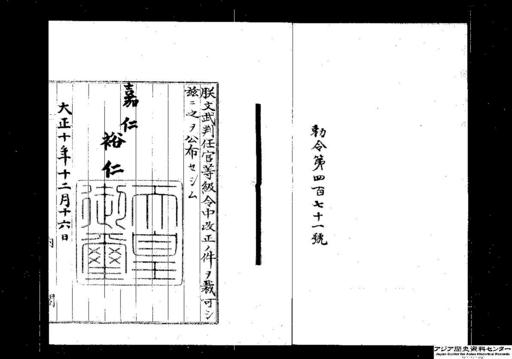 勅令第四百七十一號
朕文武判任官等級令中改正ノ件ヲ裁可シ
茲ニ之ヲ公布セシム
嘉仁
裕仁
天皇御璽
大正十年十二月十六日
内閣
アジア歴史資料センター
Japan Center for Asian Historical Records